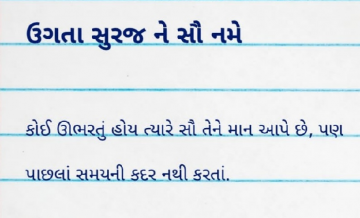 ઉગતા સુરજ ને સૌ નમે
કોઈ ઊભરતું હોય ત્યારે સૌ તેને માન આપે છે, પણ
પાછલાં સમયની કદર નથી કરતાં.